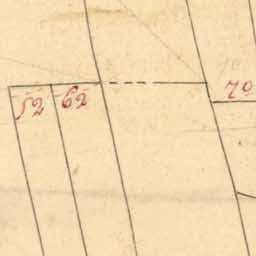 70
52 62